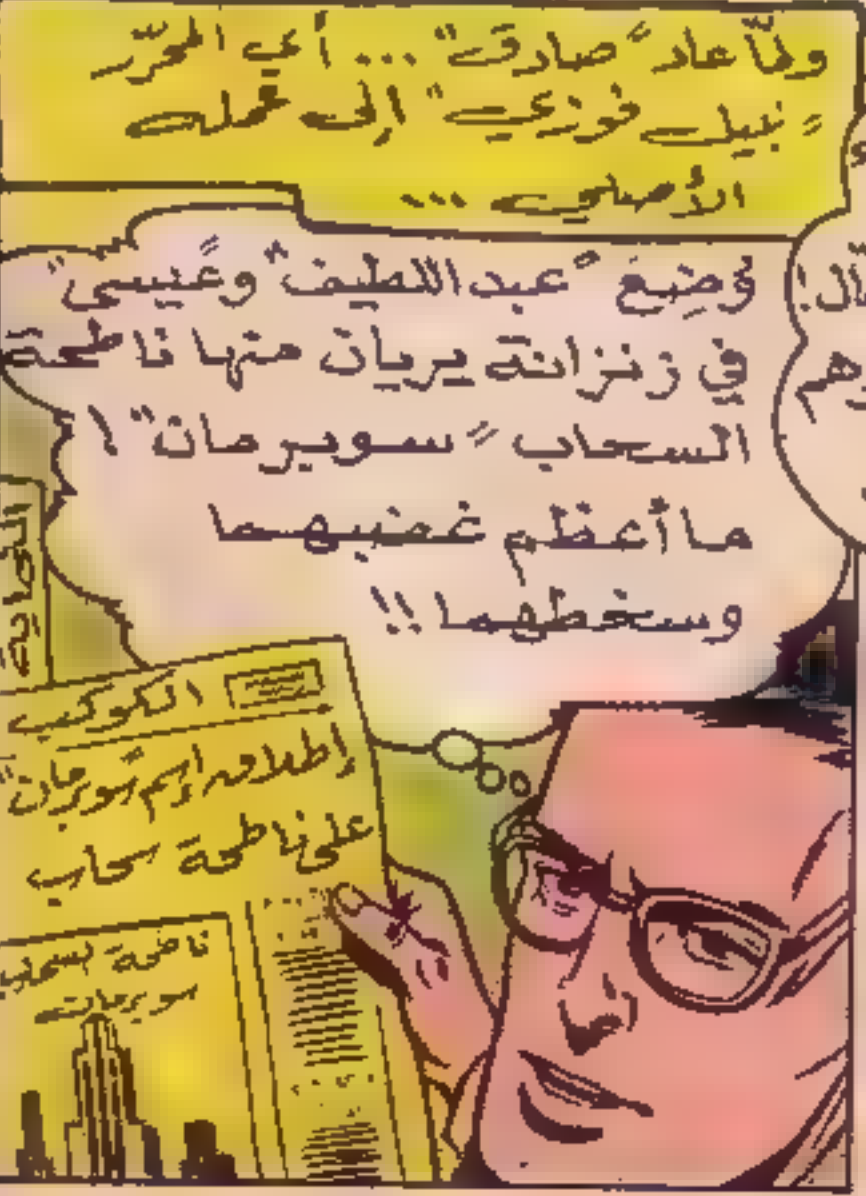 ولمّا عاد "صادق" ... أي المحرّر
"نبيل فوزي" إلى عمله
الأصلي ...
وُضِعَ "عبد اللطيف" و"عيسى"
في زنزانة يريان منها ناطحة
السحاب "سوبرمان"!
ما أعظم غضبهما
وسخطهما!!
الكوكب
إطلاق إسم "سوبرمان"
على ناطحة سحاب
ناطحة السحاب
سوبرمان
وهم